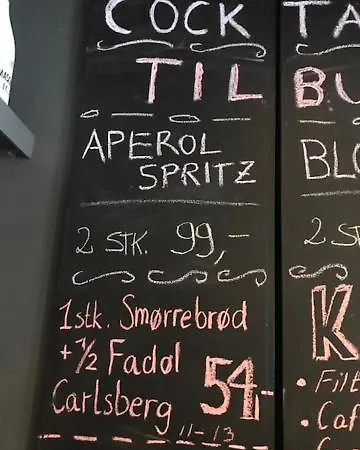 COCK
TIL
APEROL
SPRITZ
2 STK. 99,-
1stk. Smørrebrød
+ 1/2 Fadøl
Carlsberg 54,-
11-13
TA
BU
BLO
2 S
K
• Filt
• Caf